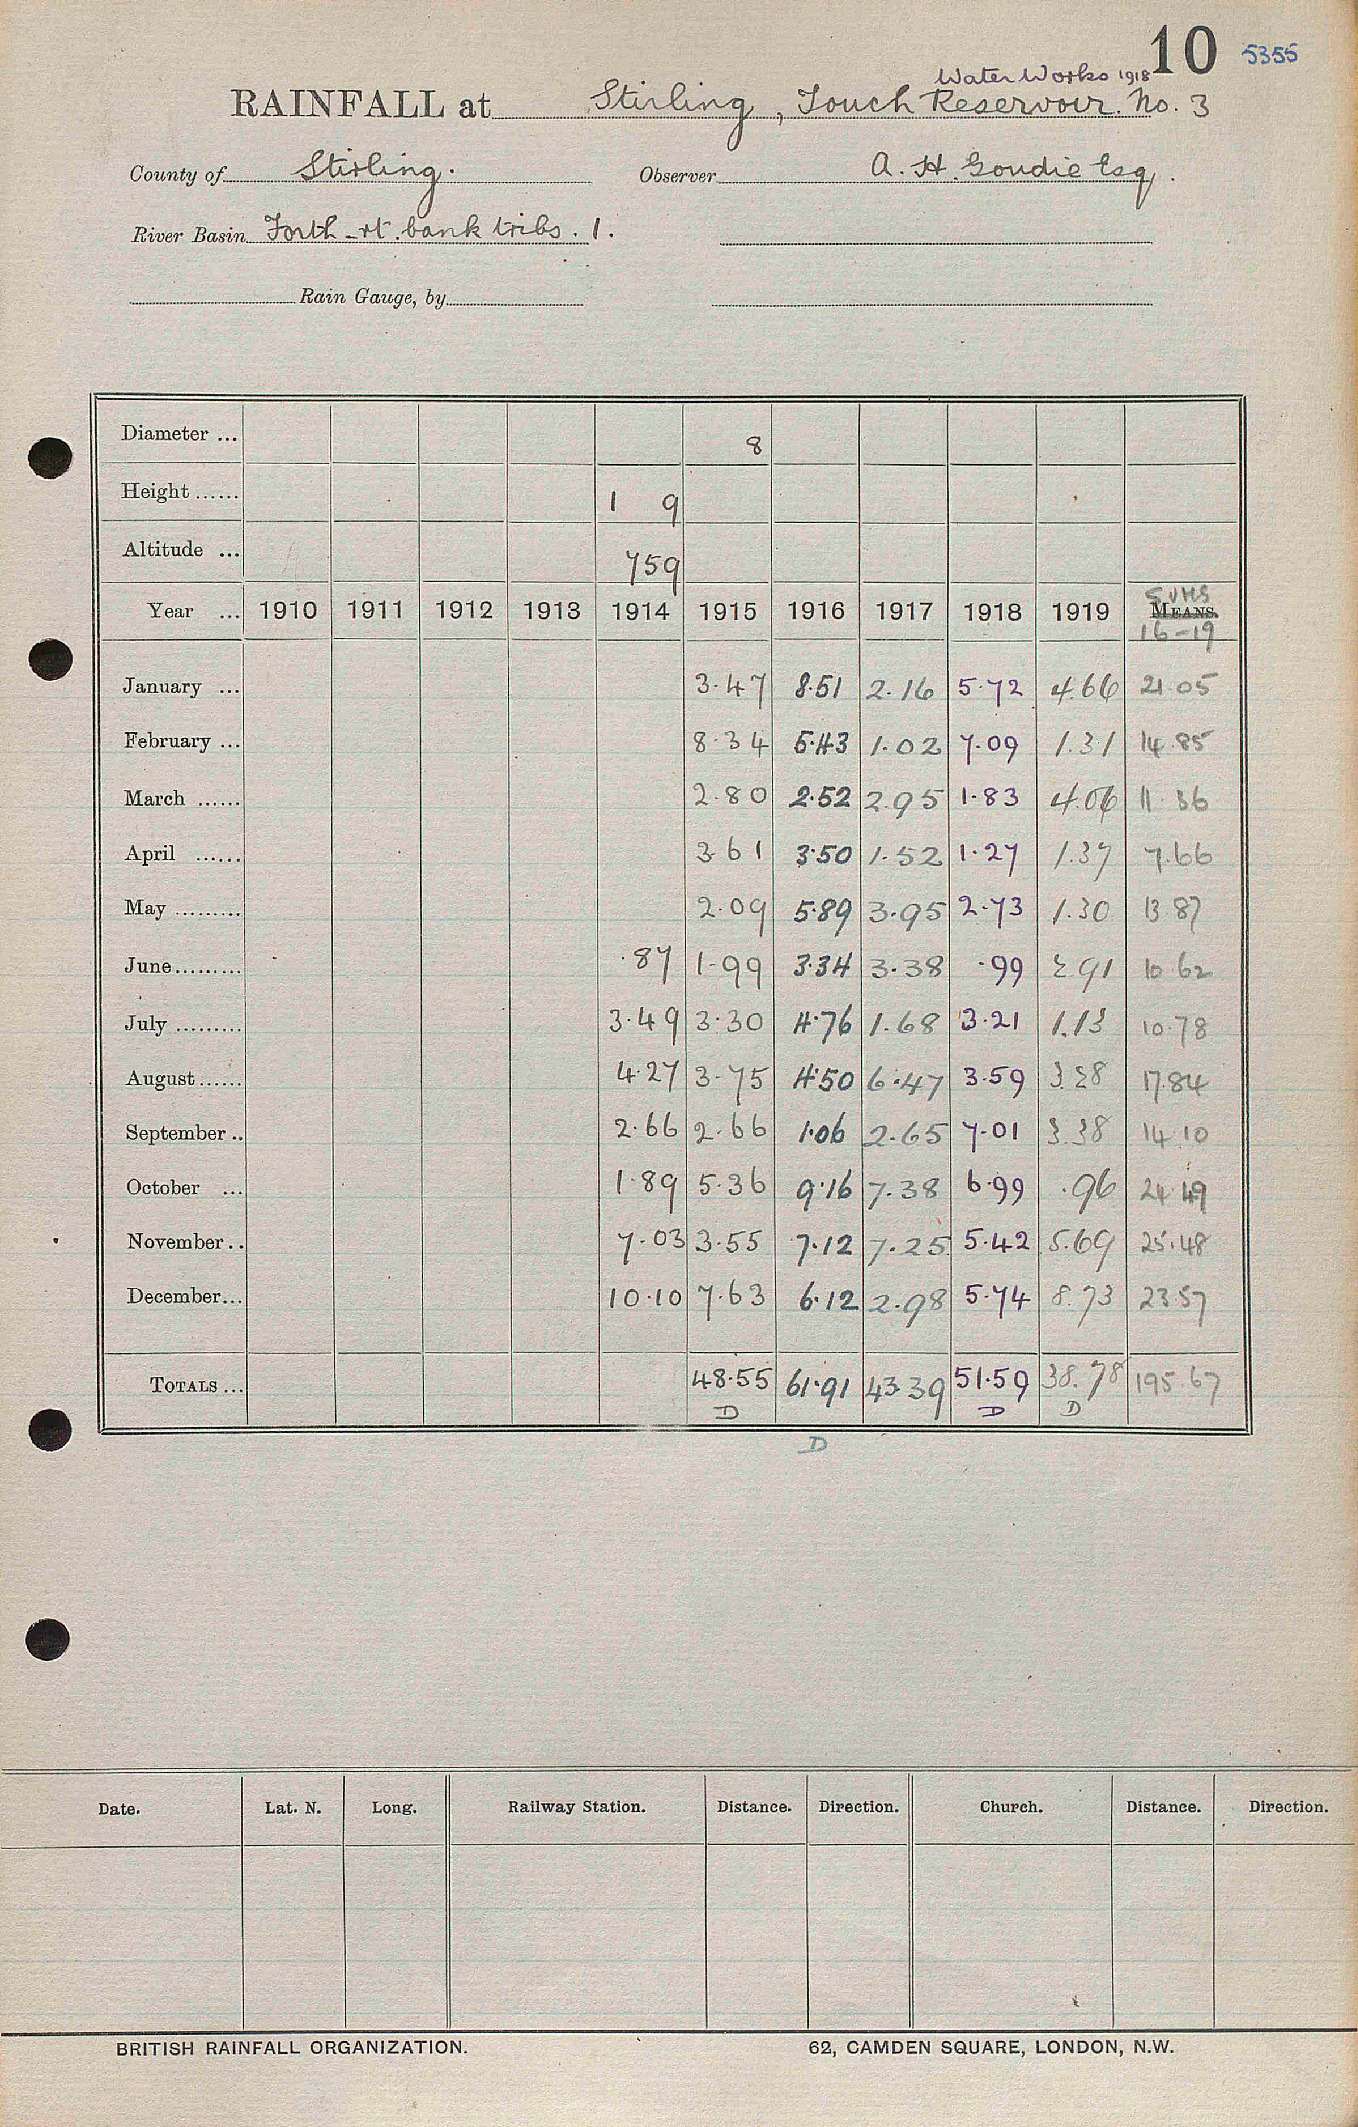 10 5355
Water Works 1918
RAINFALL at Stirling, Touch Reservoir. No. 3
County of Stirling. Observer A. H. Goudie Esq.
River Basin Forth - rt. bank tribs. 1.
Rain Gauge, by
Diameter ... 8
Height ...... 1 9
Altitude ... 759
SUMS
Year ... 1910 1911 1912 1913 1914 1915 1916 1917 1918 1919 MEANS.
16-19
January ... 3.47 8.51 2.16 5.72 4.66 21.05
February ... 8.34 5.43 1.02 7.09 1.31 14.85
March ...... 2.80 2.52 2.95 1.83 4.06 11.36
April ...... 3.61 3.50 1.52 1.27 1.37 7.66
May ......... 2.09 5.89 3.95 2.73 1.30 13.87
June......... .87 1.99 3.34 3.38 .99 2.91 10.62
July ......... 3.49 3.30 4.76 1.68 3.21 1.13 10.78
August...... 4.27 3.75 4.50 6.47 3.59 3.28 17.84
September .. 2.66 2.66 1.06 2.65 7.01 3.38 14.10
October ... 1.89 5.36 9.16 7.38 6.99 .96 24.49
November .. 7.03 3.55 7.12 7.25 5.42 5.69 25.48
December... 10.10 7.63 6.12 2.98 5.74 8.73 23.57
TOTALS ... 48.55 61.91 43.39 51.59 38.78 195.67
D D D
D
Date. Lat. N. Long. Railway Station. Distance. Direction. Church. Distance. Direction.
BRITISH RAINFALL ORGANIZATION. 62, CAMDEN SQUARE, LONDON, N.W.